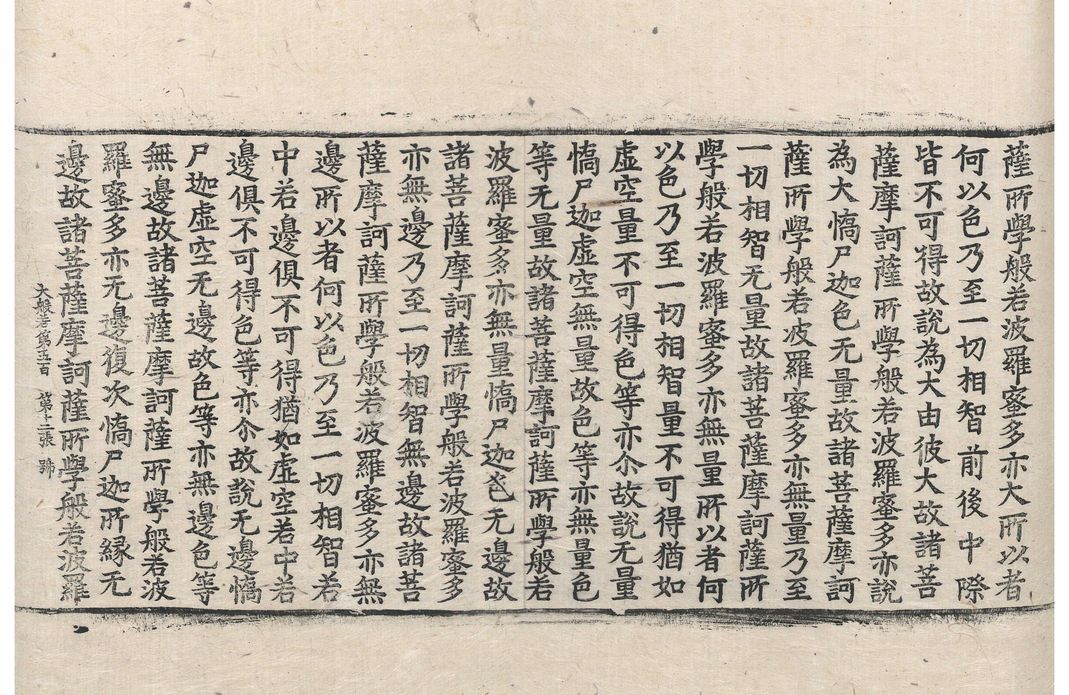 薩所學般若波羅蜜多亦大所以者
何以色乃至一切相智前後中際
皆不可得故說為大由彼大故諸菩
薩摩訶薩所學般若波羅蜜多亦說
為大憍尸迦色无量故諸菩薩摩訶
薩所學般若波羅蜜多亦無量乃至
一切相智无量故諸菩薩摩訶薩所
學般若波羅蜜多亦無量所以者何
以色乃至一切相智量不可得猶如
虛空量不可得色等亦尒故說无量
憍尸迦虛空無量故色等亦無量色
等无量故諸菩薩摩訶薩所學般若
波羅蜜多亦無量憍尸迦色无邊故
諸菩薩摩訶薩所學般若波羅蜜多
亦無邊乃至一切相智無邊故諸菩
薩摩訶薩所學般若波羅蜜多亦無
邊所以者何以色乃至一切相智若
中若邊俱不可得猶如虛空若中若
邊俱不可得色等亦尒故說无邊憍
尸迦虛空无邊故色等亦無邊色等
無邊故諸菩薩摩訶薩所學般若波
羅蜜多亦无邊復次憍尸迦所緣无
邊故諸菩薩摩訶薩所學般若波羅
大般若第五百 第十二張 號